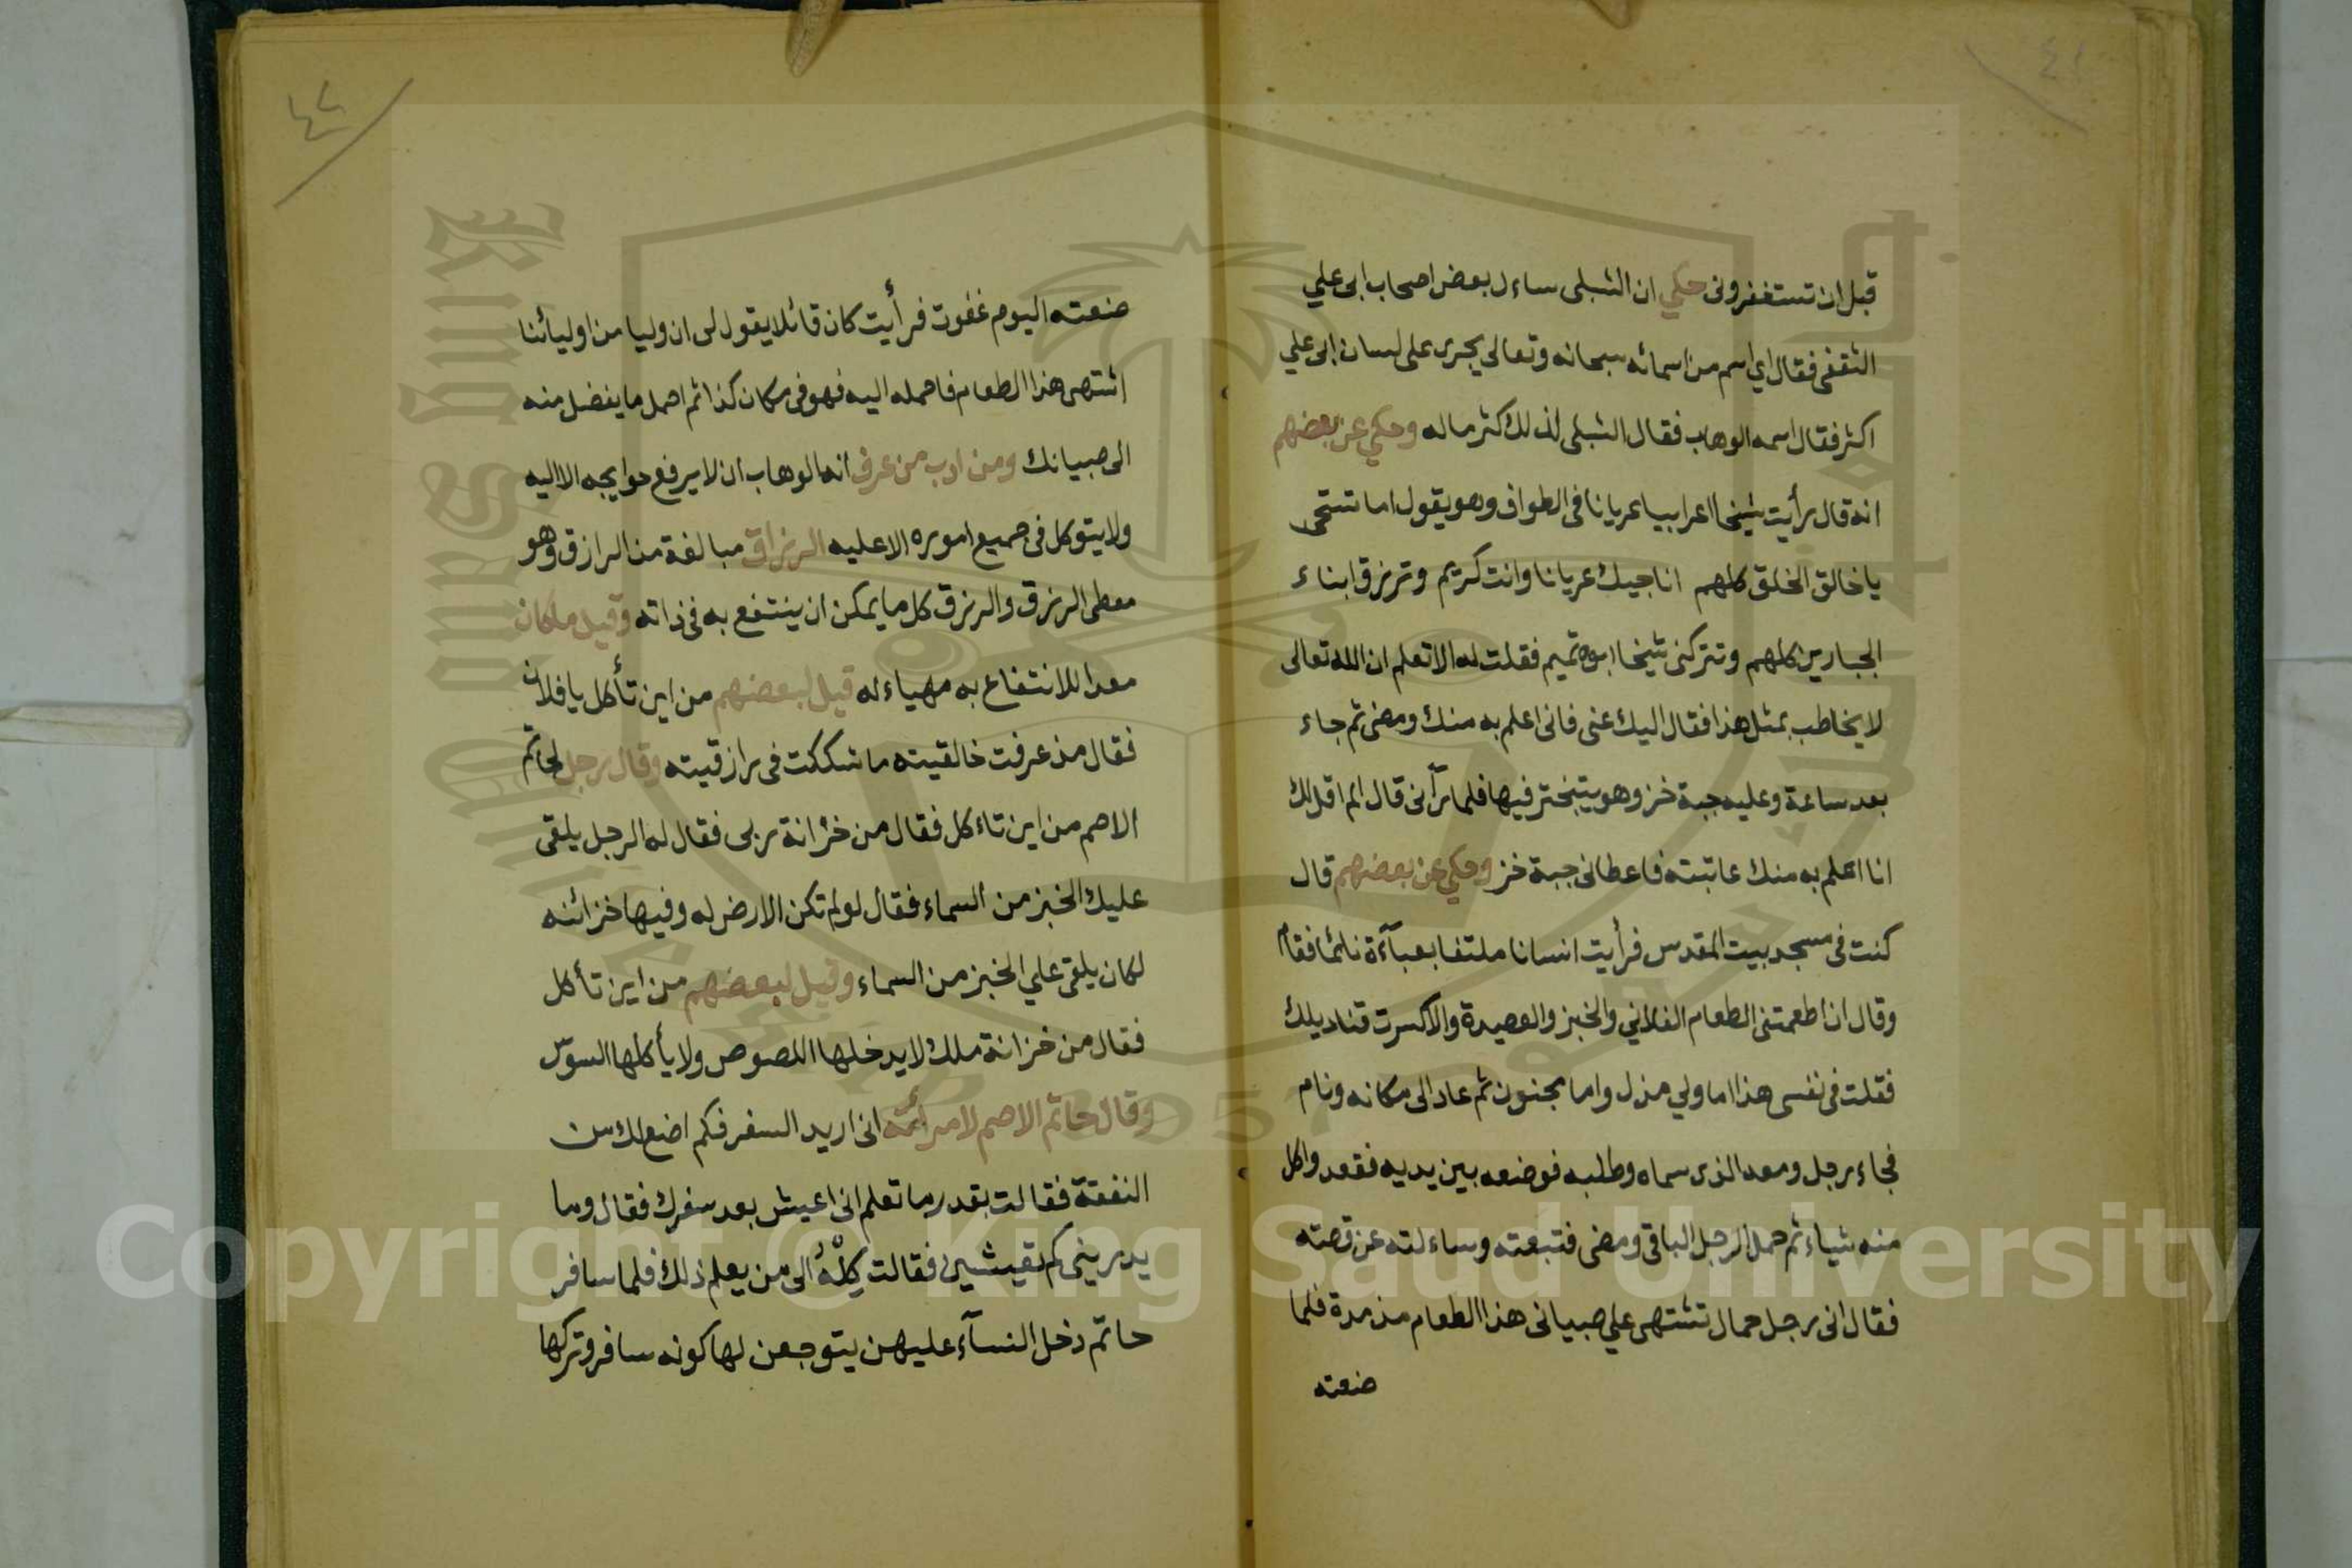 ٤١
قبل ان تستغفرونى حكي ان الشبلى ساءل بعض اصحاب ابى علي
الثقفى فقال اي اسم من اسمائه سبحانه وتعالى يجرى على لسان ابى علي
اكثر فقال اسمه الوهاب فقال الشبلى لذلك كثر ماله وحكي عن بعضهم
انه قال رأيت شيخا اعرابيا عريانا فى الطواف وهو يقول اما تستحى
يا خالق الخلق كلهم اناجيك عريانا وانت كريم وترزق ابناء
الجبارين كلهم وتتركنى شيخا ابوه تميم فقلت له الا تعلم ان الله تعالى
لا يخاطب بمثل هذا فقال اليك عنى فانى اعلم به منك ومضى ثم جاء
بعد ساعة وعليه جبة خز وهو يتبختر فيها فلما رآنى قال الم اقل لك
انا اعلم به منك عاتبته فاعطانى جبة خز وحكي عن بعضهم قال
كنت فى مسجد بيت المقدس فرأيت انسانا ملتفا بعبآءة نائما فقام
وقال ان اطعمتنى الطعام الفلاني والخبز والعصيدة والا كسرت قناديلك
فقلت فى نفسى هذا اما ولي مذل واما مجنون ثم عاد الى مكانه ونام
فجاء رجل ومعه الذى سماه وطلبه فوضعه بين يديه فقعد واكل
منه شياء ثم حمل الرجل الباقى ومضى فتبعته وساءلته عن قصته
فقال انى رجل حمال تشتهى علي صبيانى هذا الطعام مذ مدة فلما
صنعته
٤٢
صنعته اليوم غفوت فرأيت كان قائلا يقول لى ان وليا من اوليائنا
اشتهى هذا الطعام فاحمله اليه فهو فى مكان كذا ثم احمل ما يفضل منه
الى صبيانك ومن ادب من عرف انه الوهاب ان لا يرفع حوايجه الا اليه
ولا يتوكل فى جميع اموره الا عليه الرزاق مبالغة من الرازق وهو
معطى الرزق والرزق كل ما يمكن ان ينتفع به فى ذاته وقيل ما كان
معدا للانتفاع به مهياء له قيل لبعضهم من اين تأكل يا فلان
فقال مذ عرفت خالقيته ما شككت فى رازقيته وقال رجل لحاتم
الاصم من اين تاءكل فقال من خزانة ربى فقال له الرجل يلقى
عليك الخبز من السماء فقال لو لم تكن الارض له وفيها خزائنه
لكان يلقى علي الخبز من السماء وقيل لبعضهم من اين تأكل
فقال من خزانة ملك لا يدخلها اللصوص ولا يأكلها السوس
وقال حاتم الاصم لامرأته انى اريد السفر فكم اضع لك من
النفقة فقالت بقدر ما تعلم انى اعيش بعد سفرك فقال وما
يدرينى كم تعيشين فقالت كِلْهُ الى من يعلم ذلك فلما سافر
حاتم دخل النسآء عليهن يتوجعن لها كونه سافر وتركها
Copyright © King Saud University